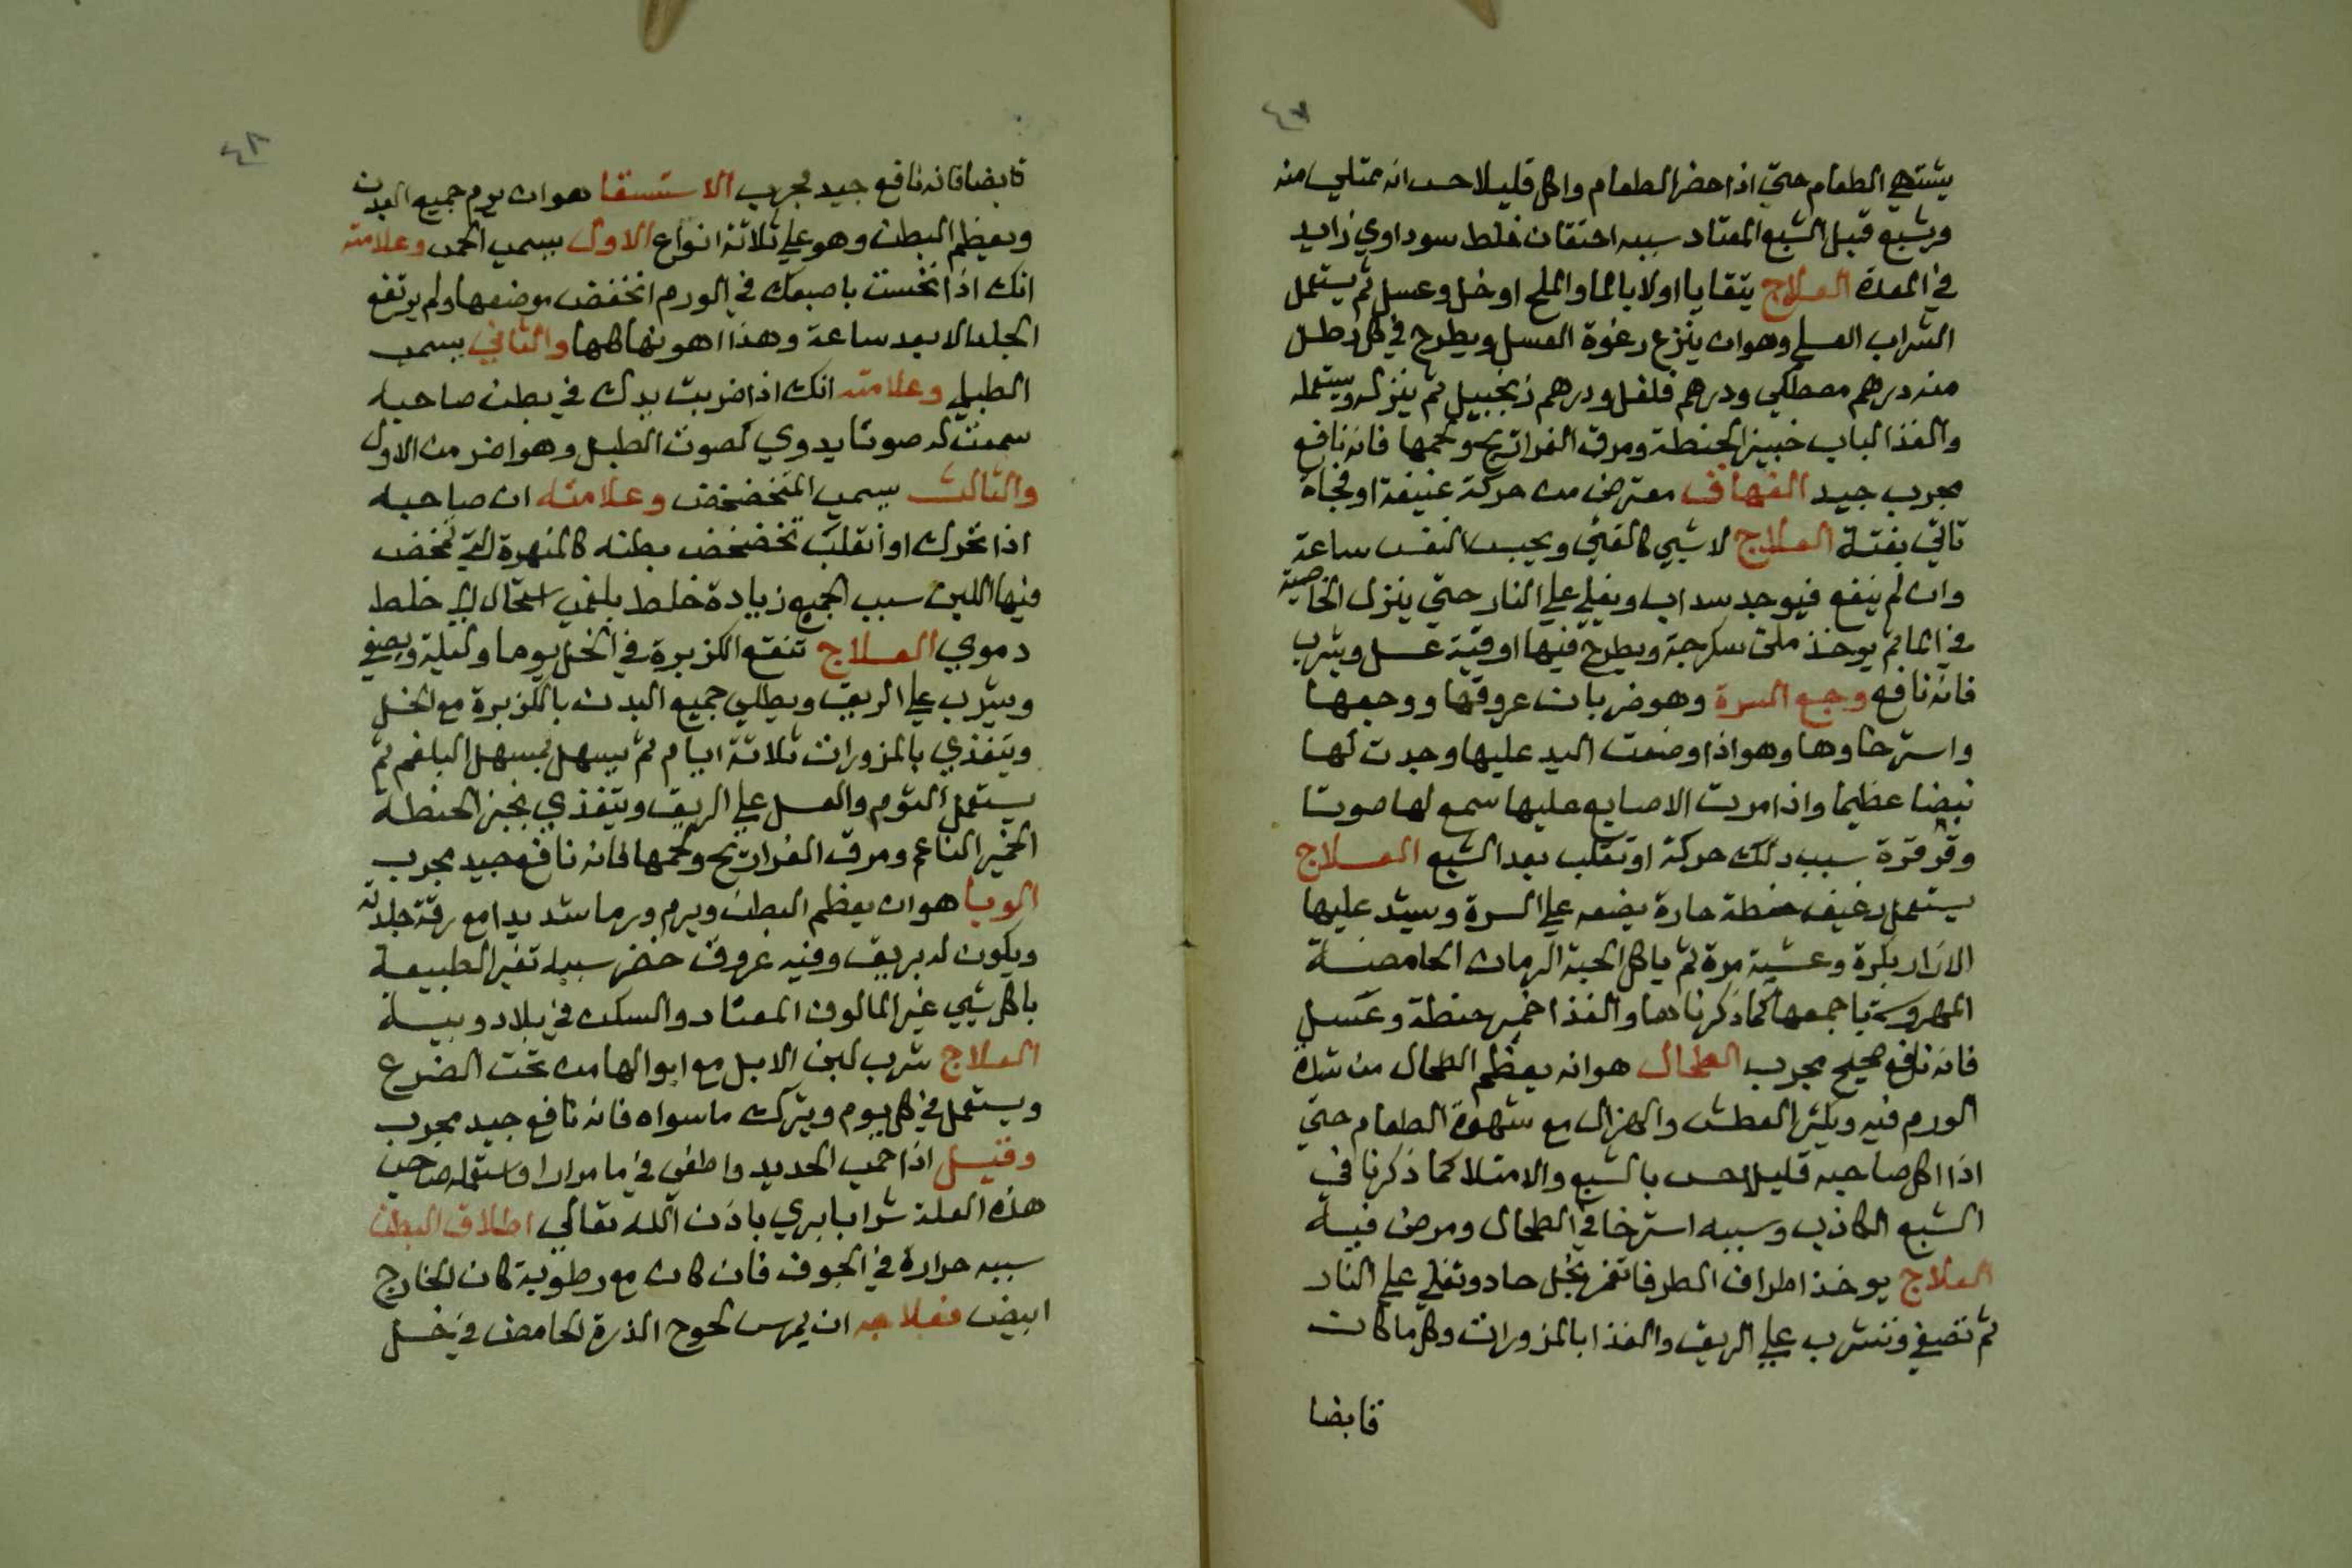 ٤٧
يشتهي الطعام حتي اذا حضر الطعام واكل قليلا حس انه ممتلي منه
ويشبع قبل الشبع المعتاد سببه احتقان خلط سوداوي زايد
في المعدة العلاج يتقايا اولا بالما والملح او خل وعسل ثم يستعمل
الشراب العسلي وهو ان ينزع رغوة العسل ويطرح في كل رطل
منه درهم مصطكي ودرهم فلفل ودرهم زنجبيل ثم ينزله ويستعمله
والغذا لباب خبز الحنطة ومرق الفراريج ولحمها فانه نافع
مجرب جيد الفهاق معترض من حركة عنيفة او فجاة
تاتي بغتة العلاج لا شي كالقي ويحبس النفس ساعة
وان لم ينفع فيوجد سداب ويغلي علي النار حتي ينزل الخاصية
في الما ثم يوخذ ملئ سكرجة ويطرح فيها اوقية عسل ويشرب
فانه نافع وجع السرة وهو ضربان عروقها ووجعها
واسترخاوها وهو اذا وضعت اليد عليها وجدت لها
نبضا عظيما واذا مرت الاصابع عليها سمع لها صوتا
وقرقرة سبب ذلك حركة او تقلب بعد الشبع العلاج
يستعمل رغيف حنطة حارة يضعه علي السرة ويشد عليها
الازار بكرة وعشية مرة ثم ياكل الحبة الرمان الحامضة
المهروسة باجمعها كما ذكرناها والغذا خمير حنطة وعسل
فانه نافع صحيح مجرب الطحال هو انه يعظم الطحال من شدة
الورم فيه ويكثر العطش والهزال مع شهوة الطعام حتي
اذا اكل صاحبه قليلا حس بالشبع والامتلا كما ذكرنا في
الشبع الكاذب وسببه استرخا في الطحال ومرض فيه
العلاج يوخذ اطراف الطرفا تغمر بخل حاد وتغلي علي النار
ثم تصفي وتشرب علي الريق والغذا بالمزورات وكل ما كان
قابضا
٤٨
قابضا فانه نافع جيد مجرب الاستسقا هو ان يرم جميع البدن
ويعظم البطن وهو علي ثلاثة انواع الاول يسمي اللحمي وعلامته
انك اذا نخست باصبعك في الورم انخفض موضعها ولم يرتفع
الجلد الا بعد ساعة وهذا اهونها كلها والثاني يسمي
الطبلي وعلامته انك اذا ضربت بيدك في بطن صاحبه
سمعت له صوتا يدوي كصوت الطبل وهو اضر من الاول
والثالث يسمي المتخضخض وعلامته ان صاحبه
اذا تحرك او انقلب تخضخض بطنه كالمنهرة التي تمخض
فيها اللبن سبب الجميع زيادة خلط بلغمي استحال الي خلط
دموي العلاج تنقع الكزبرة في الخل يوما وليلة ويصفي
ويشرب علي الريق ويطلي جميع البدن بالكزبرة مع الخل
ويتغذي بالمزورات ثلاثة ايام ثم يسهل بمسهل البلغم ثم
يستعمل الثوم والعسل علي الريق ويتغذي بخبز الحنطة
الخمير الناعم ومرق الفراريج ولحمها فانه نافع جيد مجرب
الوبا هو ان يعظم البطن ويرم ورما شديدا مع رقة جلدته
ويكون له بريق وفيه عروق خضر سببه تغير الطبيعة
باكل شي غير المالوف المعتاد والسكن في بلاد وبية
العلاج شرب لبن الابل مع ابوالها من تحت الضرع
ويستعمل في كل يوم ويترك ما سواه فانه نافع جيد مجرب
وقيل اذا حمي الحديد واطفي في ما مرارا واستعمله صاحب
هذه العلة شرابا بري باذن الله تعالي اطلاق البطن
سببه حرارة في الجوف فان كان مع رطوبة كان الخارج
ابيض فعلاجه ان يمرس لحوح الذرة الحامض في خل